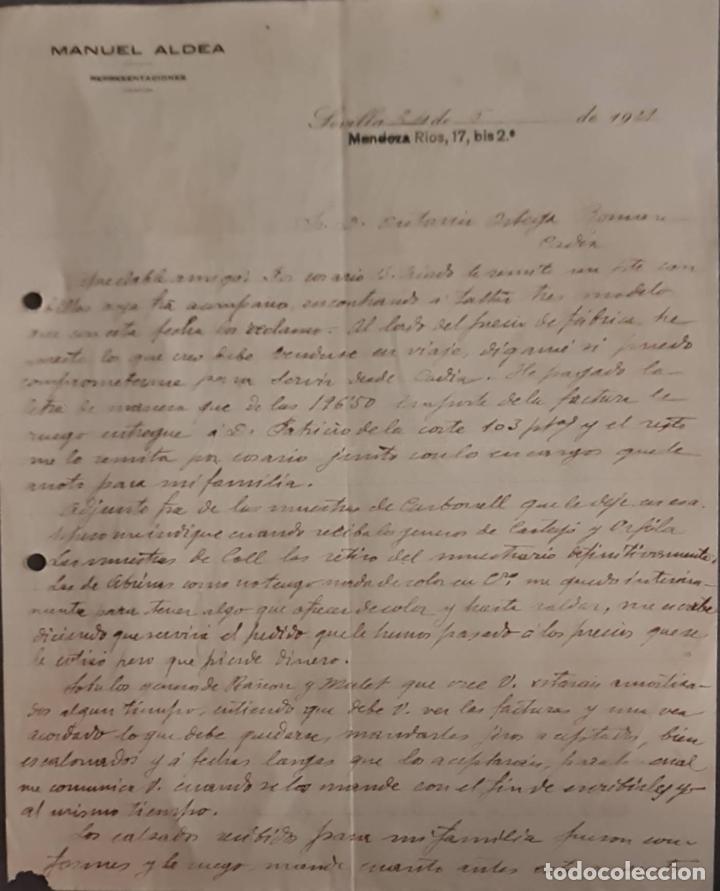 MANUEL ALDEA
REPRESENTACIONES
Sevilla 24 de 5 de 1921
Mendoza Rios, 17, bis 2.º
Sr. D. Antonio Romero
Cadiz
amigo: Por cosario le remite un
acompano, encontrando a faltar tres modelo
que con esta fecha reclamo. Al lado del precio de fábrica, he
puesto lo que creo debe venderse en viaje, digame si puedo
comprometerme para servir desde Cadiz. He pagado la
letra de manera que de las 196'50 importe de la factura le
ruego entregue á D. Patricio de la Corte 103 ptas y el resto
me lo remita por cosario junto con los encargos que le
anoto para mi familia.
Adjunto fra de las muestras de Carbonell que le deje en esa
me indique cuando reciba los generos de Castejó y Orfila
Las muestras de Coll las retiro del muestrario definitivamente.
Las de como no tengo nada de color en me quedo
para tener algo que ofrecer de color y hasta saldar, me escribe
diciendo que servirá el pedido que le hemos pasado á los precios que se
le cotisó pero que pierde dinero.
los generos de y Mulet que cree V. estarán
algun tiempo, entiendo que debe V. ver las facturas y una vez
acordado lo que debe quedarse, mandarles giros aceptados, bien
escalonados y á fechas largas que los aceptarán, para lo cual
me comunica V. cuando se los mande con el fin de escribirles yo
al mismo tiempo.
Los calzados recibidos para mi familia fueron con-
formes y le ruego mande cuanto antes
todocoleccion
todocoleccion.net